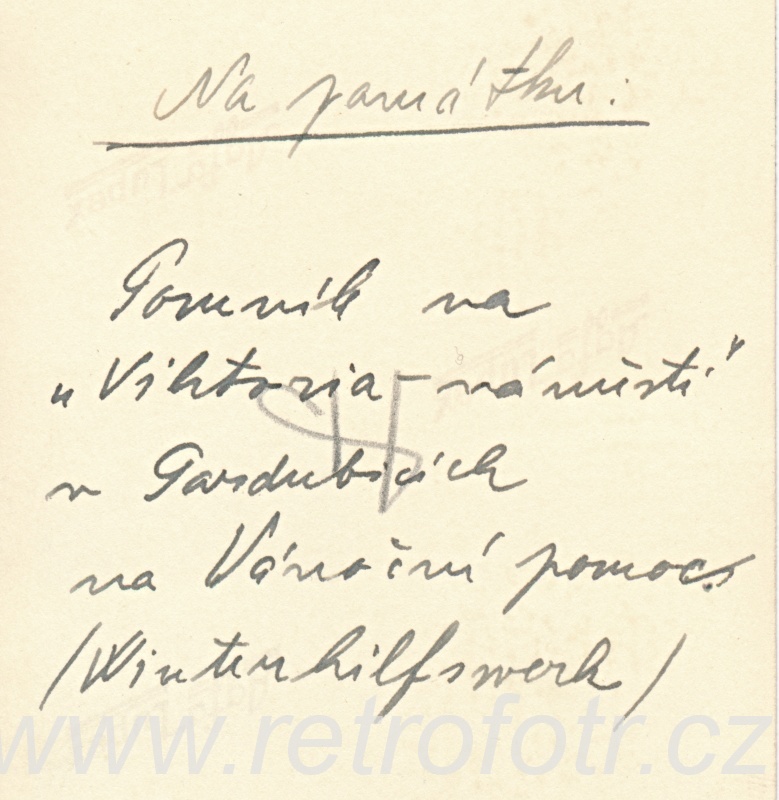 Na památku:
Pomník na
„Viktoria-náměstí"
v Pardubicích
na Vánoční pomoc
/Winterhilfswerk/
www.retrofotr.cz